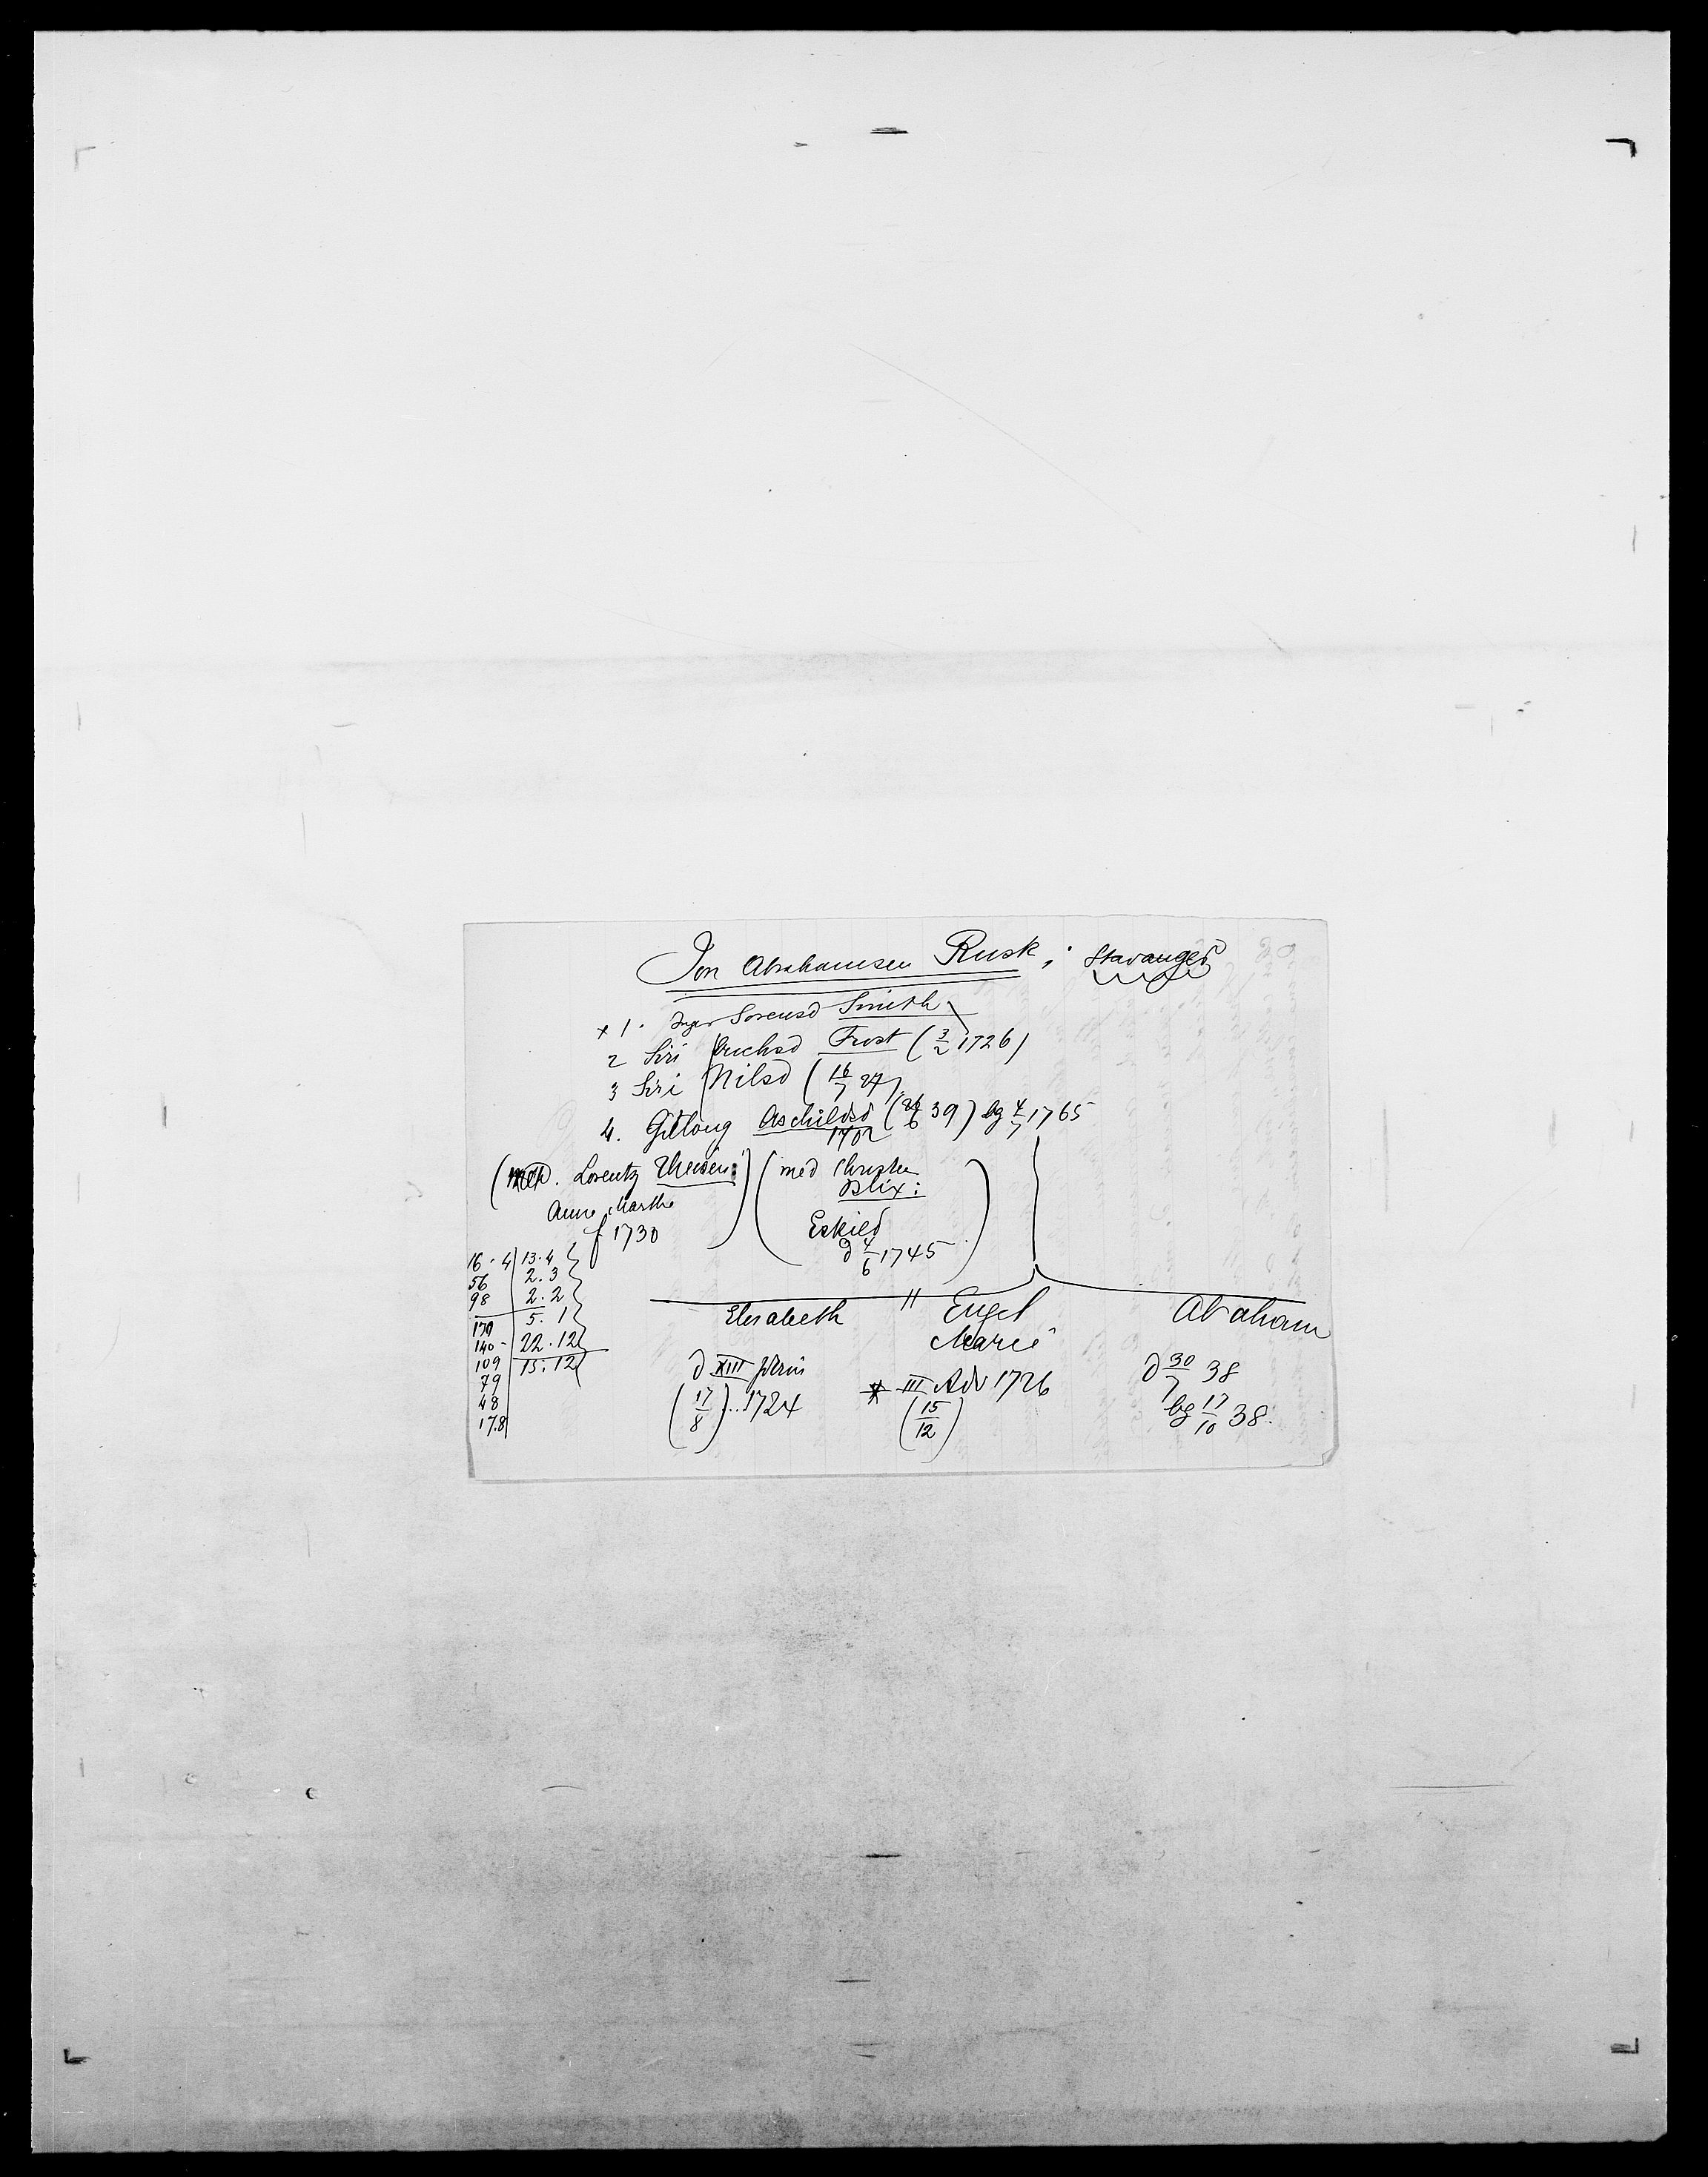 Jon Abrahamsen Rusk, i Stavanger
x 1. Inger Sorensd Smith
2 Siri Erichsd Frost (3/2 1726)
3 Siri Nilsd (16/7 27)
4. Gitlong Aschildsd (26/6 39) bg 4/7 1765
1702
(med. Lorentz Theisen:) (med Christen
Blix:
Anne Marthe
f 1730
Eskild
d 4/6 1745)
16. 4 | 13. 4
56 | 2. 3
98 | 2. 2
170 | 5. 1
140 - | 22. 12
109 | 15. 12
79
48
17.8
Elisabeth " Engel Abraham
Marie
d XIII p trin * III Adv 1726 d 30/7 38
(17/8) .. 1724 (15/12) bg 17/10 38.